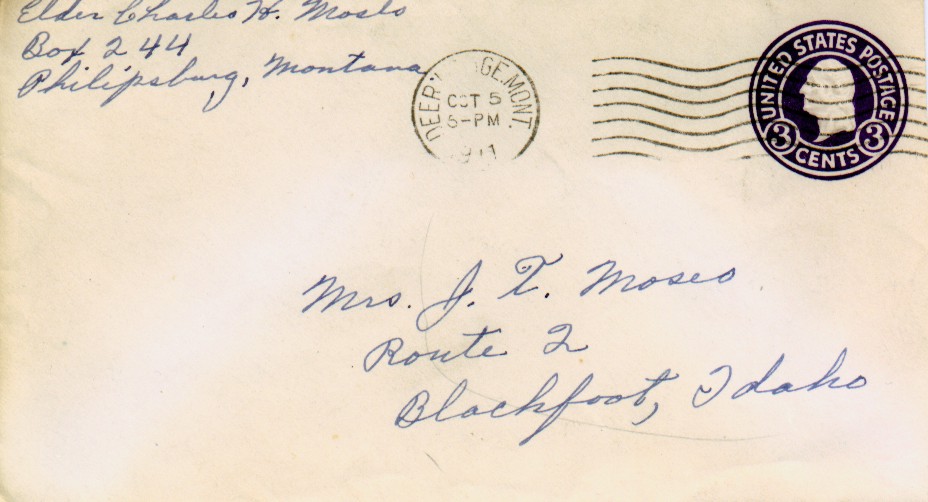 Elder Charles H. Moses
Box 244
Philipsburg, Montana
DEER LODGE, MONT.
OCT 5
PM
UNITED STATES POSTAGE
3 CENTS 3
Mrs. J. T. Moses
Route 2
Blackfoot, Idaho